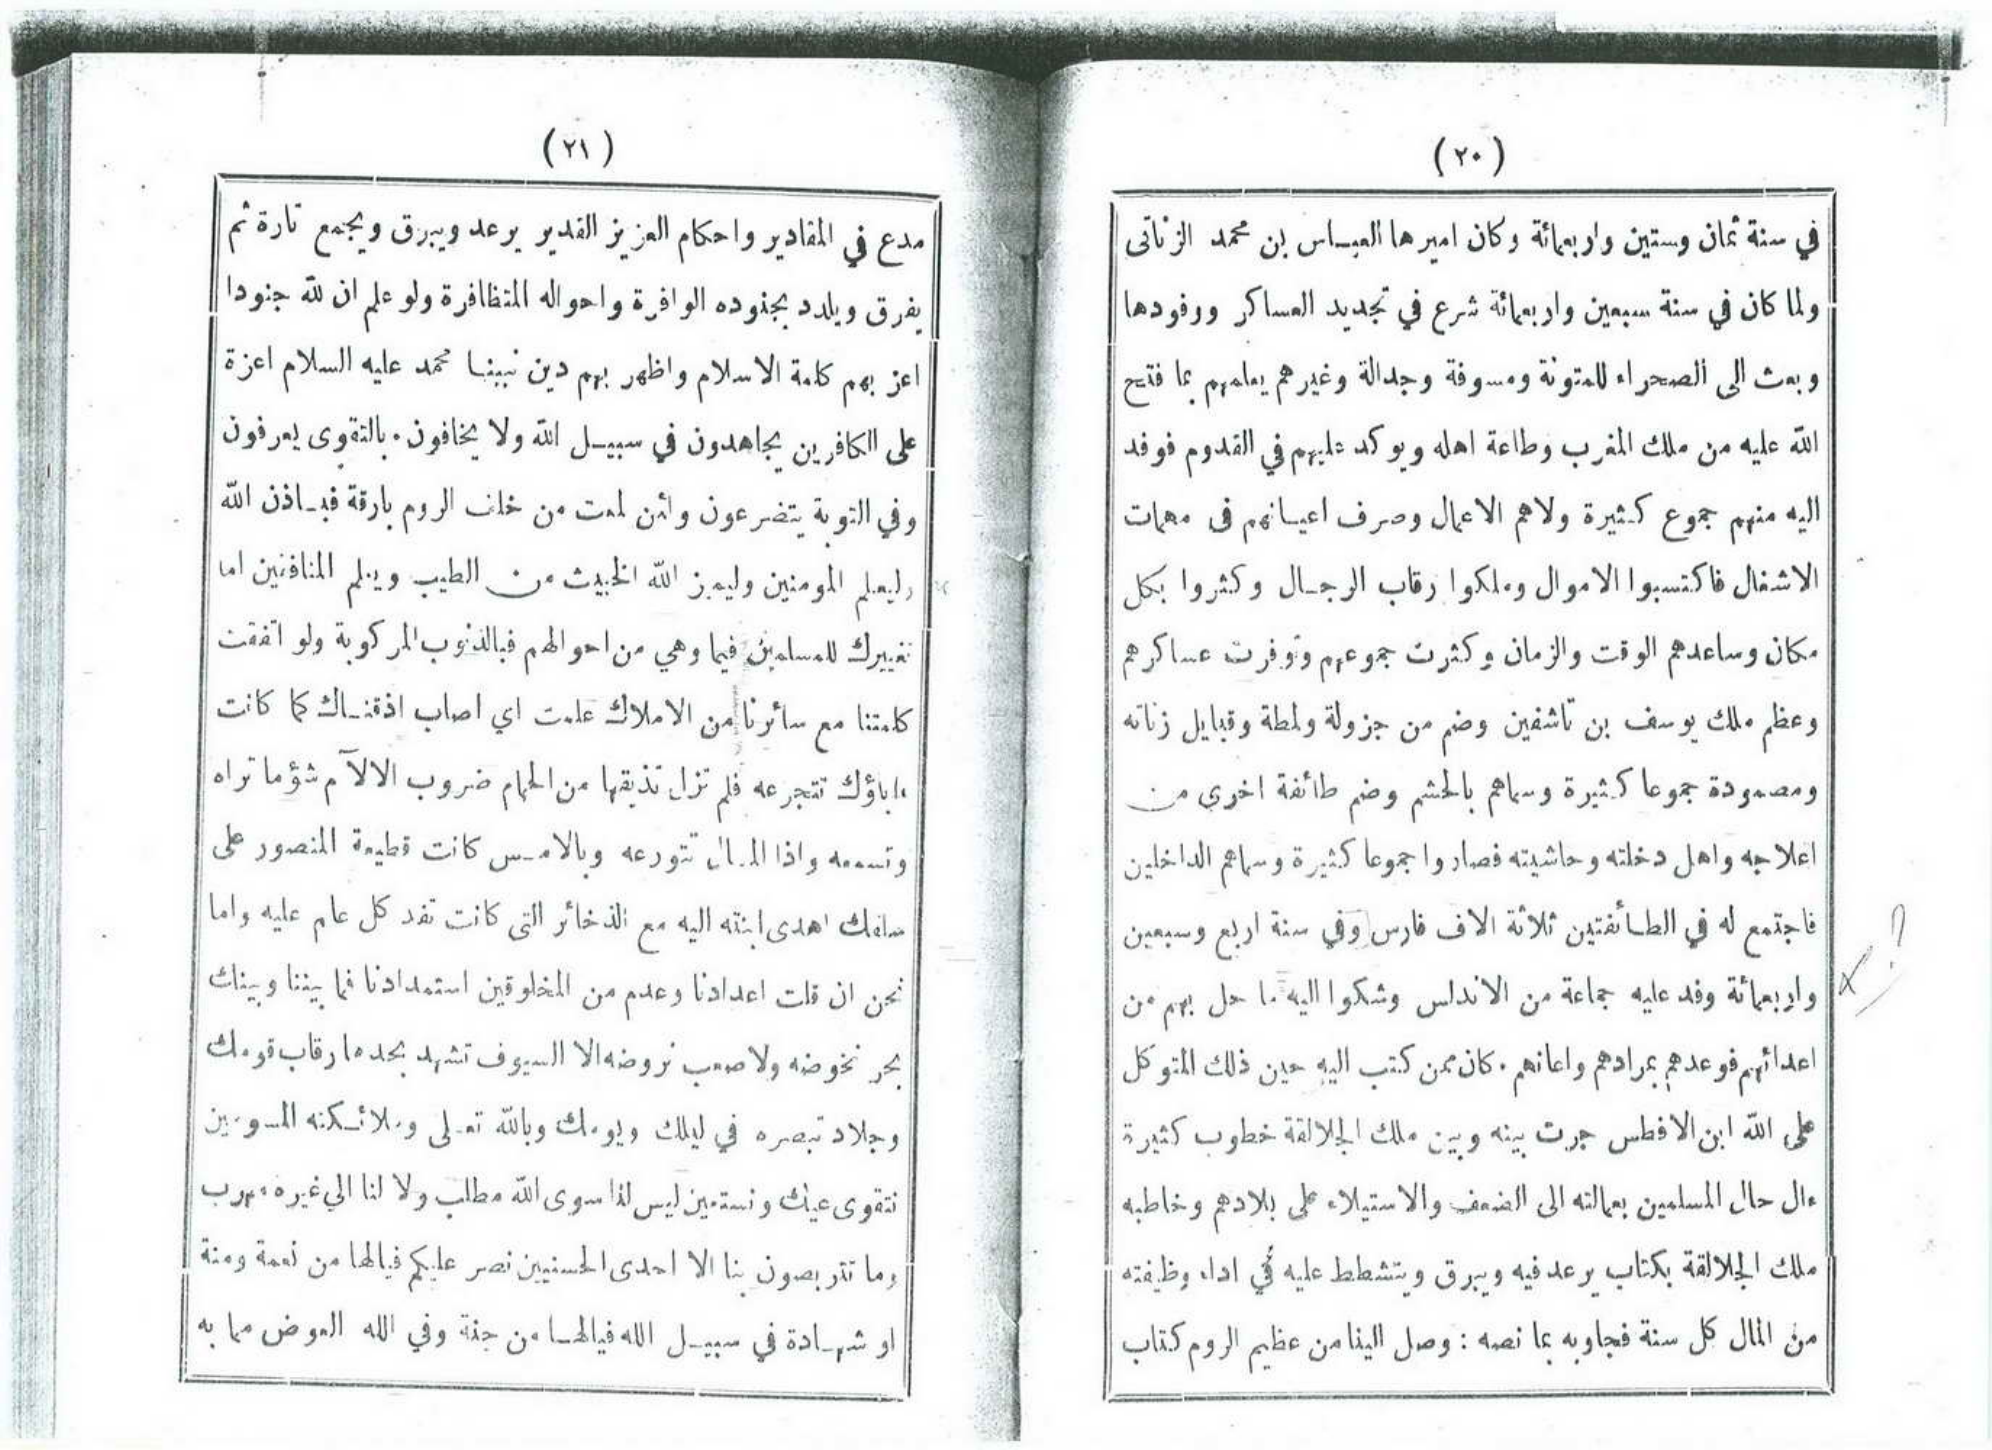 (٢٠)
في سنة ثمان وستين واربعمائة وكان اميرها العباس بن محمد الزناتى
ولما كان في سنة سبعين واربعمائة شرع في تجديد العساكر ورفودها
وبعث الى الصحراء للمتونة ومسوفة وجدالة وغيرهم يعلمهم بما فتح
الله عليه من ملك المغرب وطاعة اهله ويوكد عليهم في القدوم فوفد
اليه منهم جموع كثيرة ولاهم الاعمال وصرف اعيانهم فى مهمات
الاشغال فاكتسبوا الاموال وملكوا رقاب الرجال وكثروا بكل
مكان وساعدهم الوقت والزمان وكثرت جموعهم وتوفرت عساكرهم
وعظم ملك يوسف بن تاشفين وضم من جزولة ولمطة وقبايل زناته
ومصمودة جموعا كثيرة وسماهم بالحشم وضم طائفة اخرى من
اعلاجه واهل دخلته وحاشيته فصاروا جموعا كثيرة وسماهم الداخلين
فاجتمع له في الطائفتين ثلاثة الاف فارس وفي سنة اربع وسبعين
واربعمائة وفد عليه جماعة من الاندلس وشكوا اليه ما حل بهم من
اعدائهم فوعدهم بمرادهم واعانهم . كان ممن كتب اليه حين ذلك المتوكل
على الله ابن الافطس جرت بينه وبين ملك الجلالقة خطوب كثيرة
ءال حال المسلمين بعمالته الى الضعف والاستيلاء على بلادهم وخاطبه
ملك الجلالقة بكتاب يرعد فيه ويبرق ويتشطط عليه في اداء وظيفته
من المال كل سنة فجاوبه بما نصه : وصل الينا من عظيم الروم كتاب
(٢١)
مدع في المقادير واحكام العزيز القدير يرعد ويبرق ويجمع تارة ثم
يفرق ويلدد بجنوده الوافرة واحواله المتظافرة ولو علم ان لله جنودا
اعز بهم كلمة الاسلام واظهر بهم دين نبينا محمد عليه السلام اعزة
على الكافرين يجاهدون في سبيل الله ولا يخافون . بالتقوى يعرفون
وفي التوبة يتضرعون ولئن لمعت من خلف الروم بارقة فباذن الله
وليعلم المومنين وليميز الله الخبيث من الطيب ويعلم المنافقين اما
تعييرك للمسلمين فيما وهي من احوالهم فبالذنوب المركوبة ولو اتفقت
كلمتنا مع سائرنا من الاملاك علمت اي اصاب اذقناك كما كانت
ءاباؤك تتجرعه فلم تزل تذيقها من الحمام ضروب الالآم شؤما تراه
وتسمعه واذا المال تتورعه وبالامس كانت قطيعة المنصور على
سلفك اهدى ابنته اليه مع الذخائر التى كانت تفد كل عام عليه واما
نحن ان قلت اعدادنا وعدم من المخلوقين استمدادنا فما بيننا وبينك
بحر نخوضه ولا صعب نروضه الا السيوف تشهد بحدها رقاب قومك
وجلاد تبصره في ليلك ويومك وبالله تعلى وملائكته المسومين
نتقوى عيك ونستعين ليس لنا سوى الله مطلب ولا لنا الي غيره مهرب
وما تتربصون بنا الا احدى الحسنيين نصر عليكم فيالها من نعمة ومنة
او شهادة في سبيل الله فيالها من جنة وفي الله العوض مما به